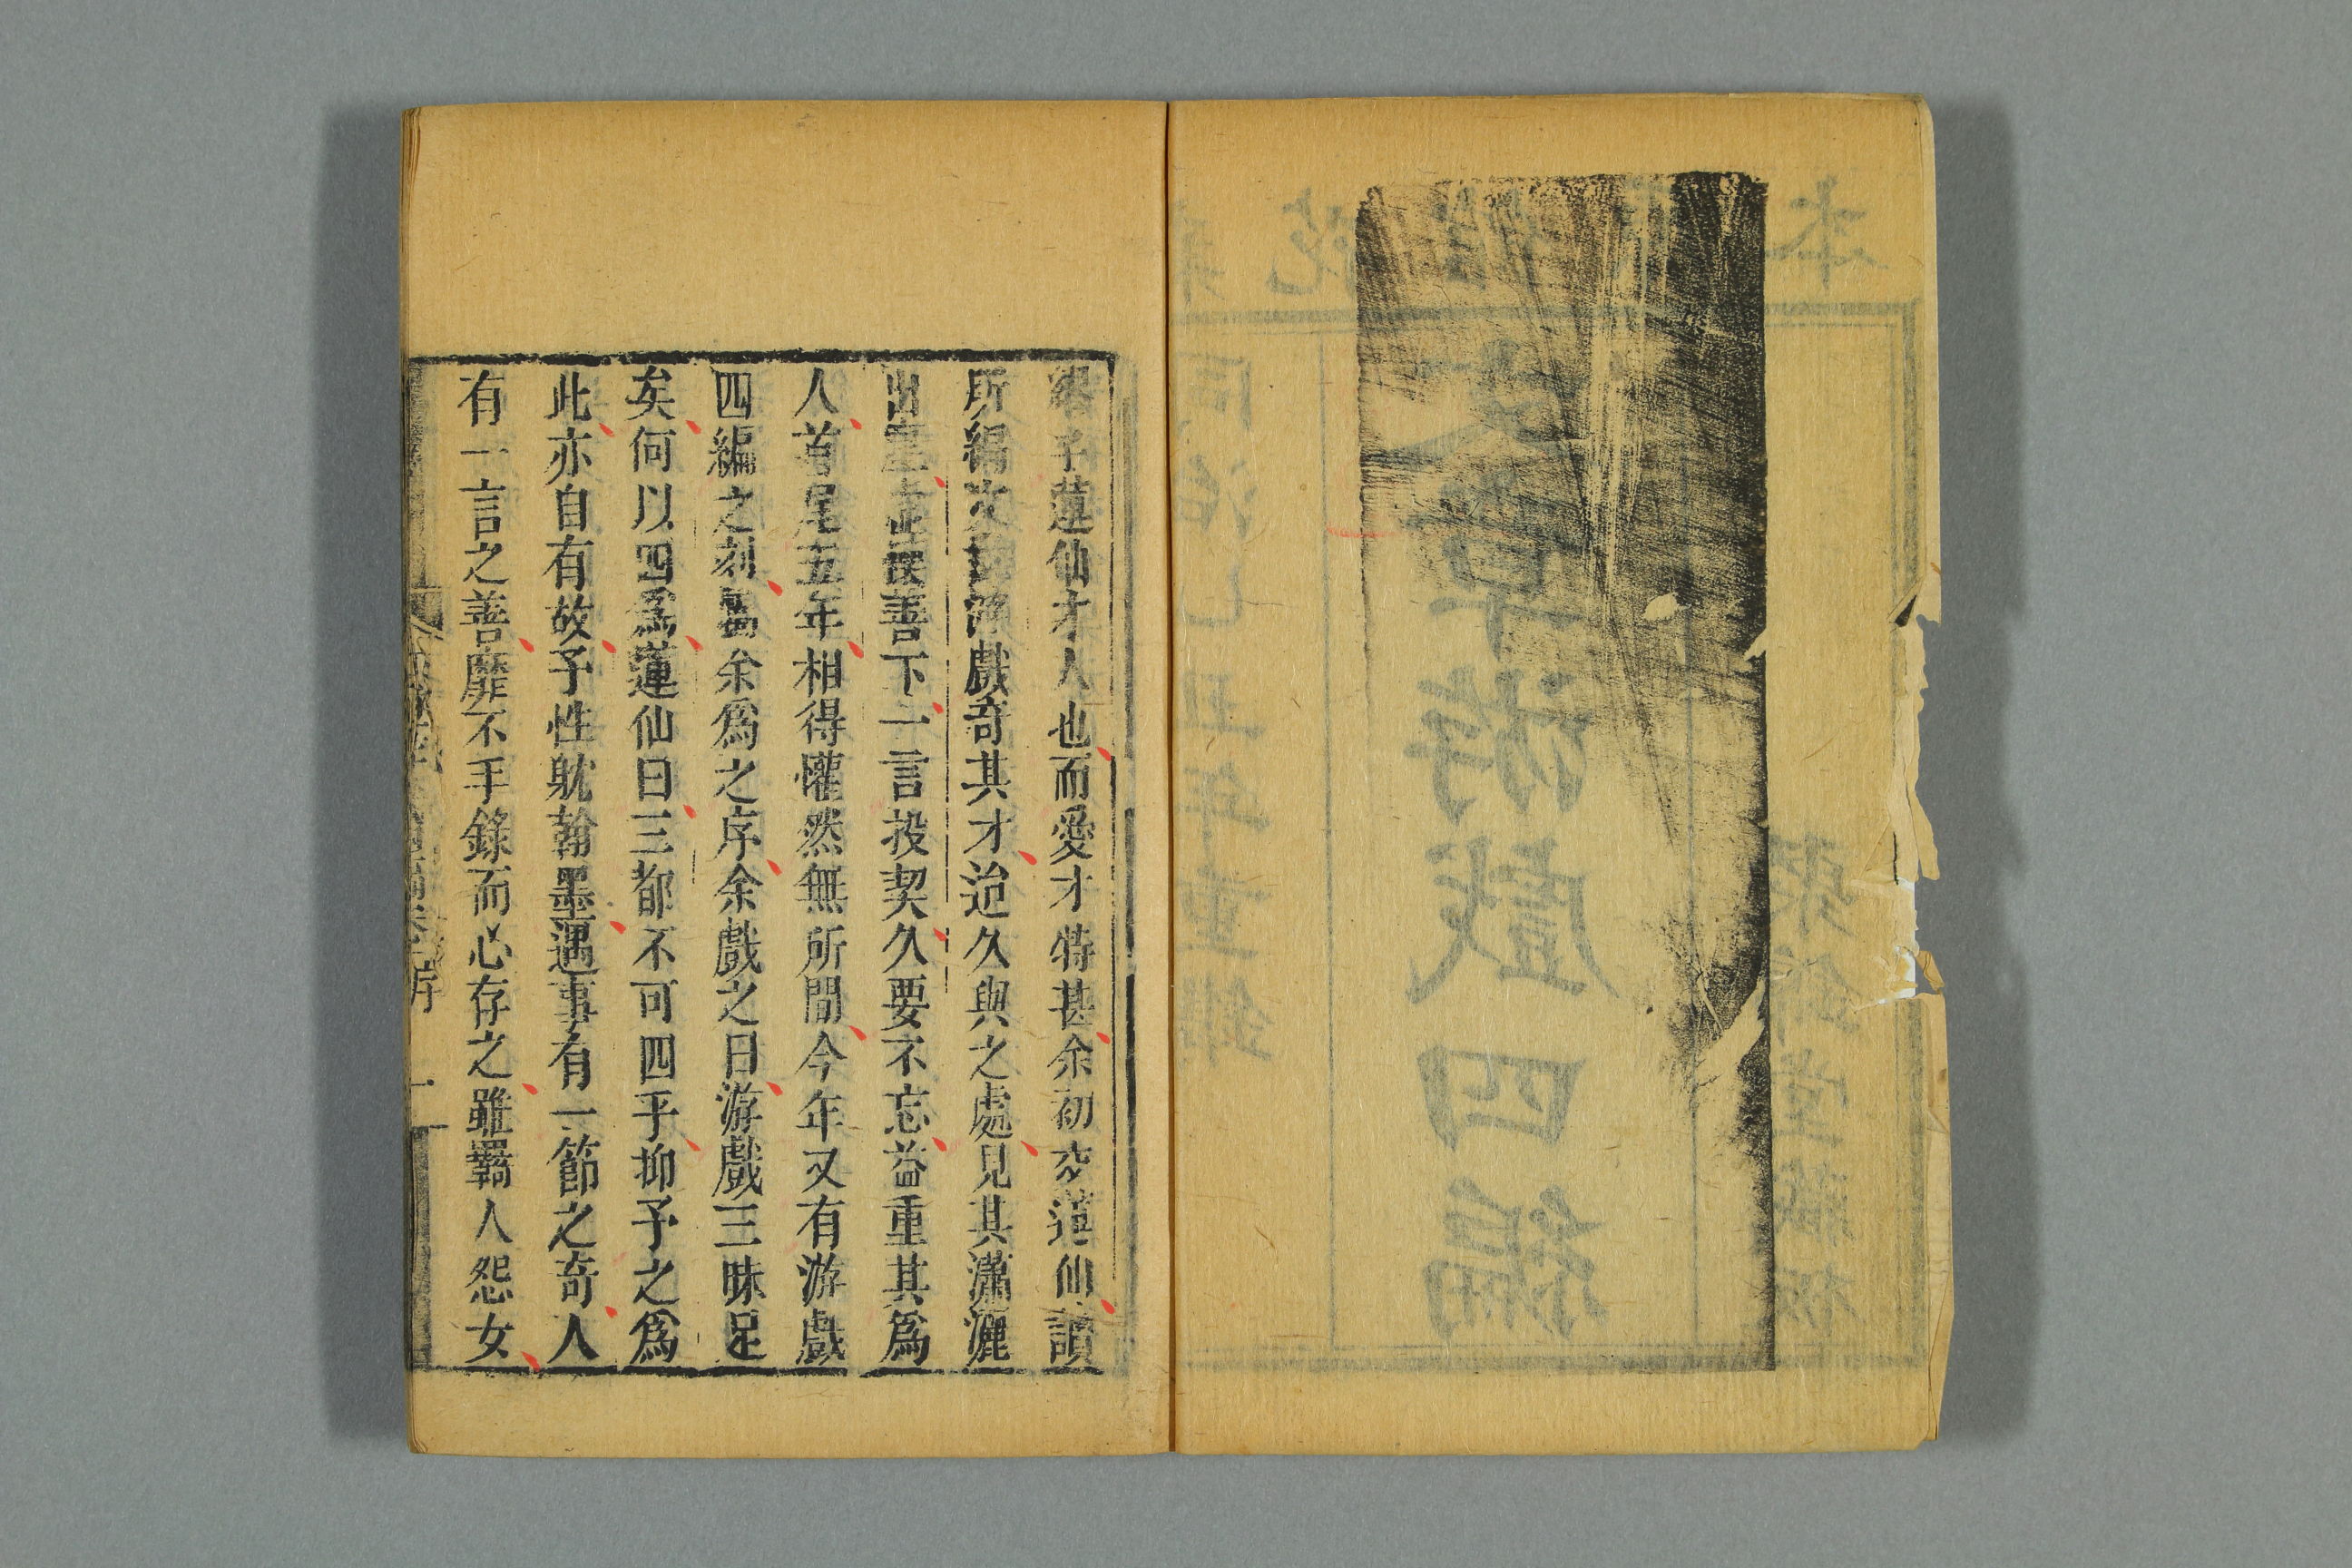 繆子蓮仙才人也而愛才特甚余初交蓮仙讀
所編次游戲奇其才迨久與之處見其瀟灑
出塵虛懷善下一言投契久要不忘益重其為
人首尾五年相得懽然無所間今年又有游戲
四編之刻囑余為之序余戲之曰游戲三昧足
矣何以四為蓮仙曰三都不可四乎抑予之為
此亦自有故予性躭翰墨遇事有一節之奇人
有一言之善靡不手錄而心存之雖羈人怨女
序
一
同治七年重鐫
文章游戲四編
聚錦堂藏板